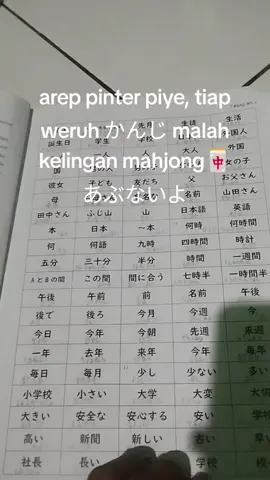 arep pinter piye, tiap
weruh かんじ malah
kelingan mahjong 🀄
あぶないよ
先月 生徒 生活
誕生日 学生 学校
人 大人 外国
女の子
彼女 子ども 友だち 父 お父さん
母 名前 山田さん
田中さん ふじ山 山 日本語 英語
本 日本 一本 何時 何時間
何 何語 九時 四時間 時計
五分 三十分 半分 時間 一週間
AとBの間 この間 間に合う 七時半 一時間半
午後 午前 前 名前 午後
後で 後ろ 今月 今週 今
今日 今年 今朝 先週 来週
一年 去年 来年 今年 毎年
毎日 毎月 少し 少ない 多い
小学校 小さい 大学 大変 大切
大きい 安全な 安心する 安い 学
高い 新聞 新しい 古い 早
社長 長い 学校 校